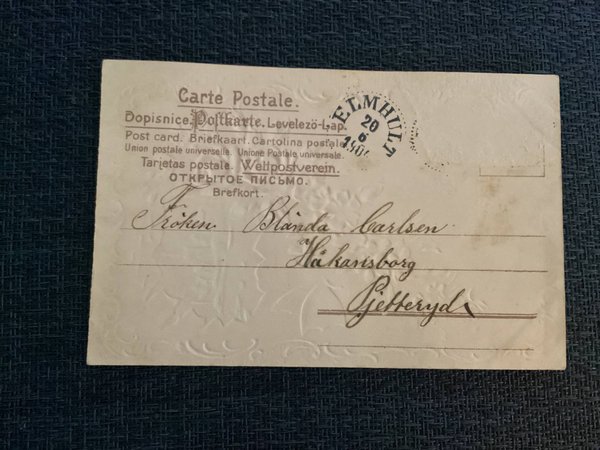 Carte Postale.
Dopisnice. Postkarte. Levelező-Lap.
Post card. Briefkaart. Cartolina postale.
Union postale universelle. Unione Postale universale.
Tarjetas postale. Weltpostverein.
ОТКРЫТОЕ ПИСЬМО.
Brefkort.
ELMHULT
20
6
Fröken Blända Carlsen
Håkansborg
Pjetteryd